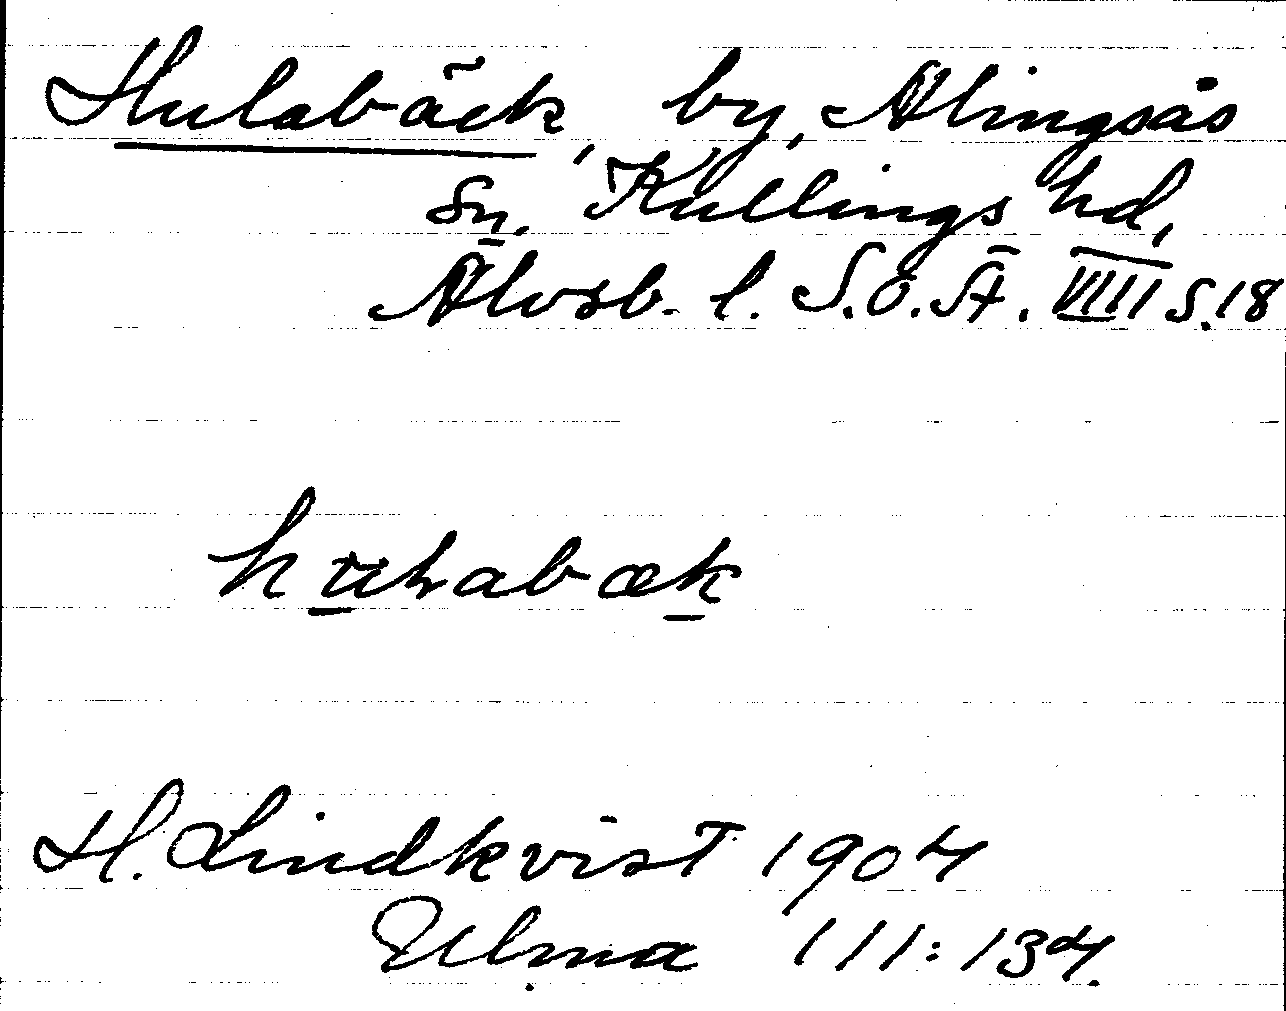 Hulabäck, by, Alingsås
sn. Kullings hd,
Älvsb. l. S.O.Ä. VIII S.18
hu̲ɫabæk̲
H. Lindkvist 1904
Ulma 111:134.